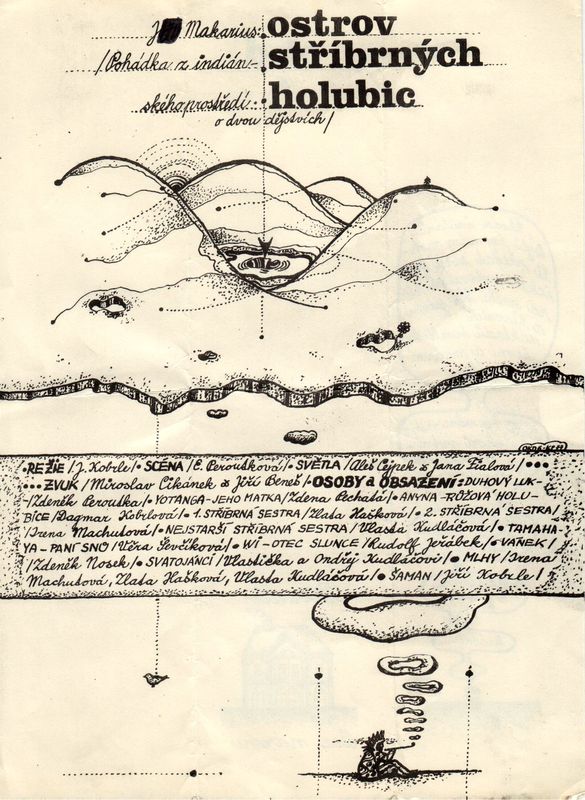 Makarius: ostrov
/Pohádka z indián- stříbrných
ského prostředí holubic
o dvou dějstvích/
• REŽIE /J. Kobrle/ • SCÉNA /E. Peroušková/ • SVĚTLA /Aleš Cejpek & Jana Fialová/ •••
••• ZVUK /Miroslav Cikánek & Jiří Beneš/ • OSOBY a OBSAZENÍ: DUHOVÝ LUK-
/Zdeněk Perouška/ • YOTANGA-JEHO MATKA /Zdena Pechatá/ • ANYNA-RŮŽOVÁ HOLU-
BICE /Dagmar Kobrlová/ • 1. STŘÍBRNÁ SESTRA /Zlata Hašková/ • 2. STŘÍBRNÁ SESTRA/
/Irena Machutová/ • NEJSTARŠÍ STŘÍBRNÁ SESTRA /Vlasta Kudláčová/ • TAMAHA-
YA - PANÍ SNŮ /Věra Ševčíková/ • WI-OTEC SLUNCE /Rudolf Jeřábek/ • VANEK/
/Zdeněk Nosek/ • SVATOJÁNCI /Vlastička a Ondřej Kudláčovi/ • MLHY /Irena
Machutová, Zlata Hašková, Vlasta Kudláčová/ • ŠAMAN /Jiří Kobrle/